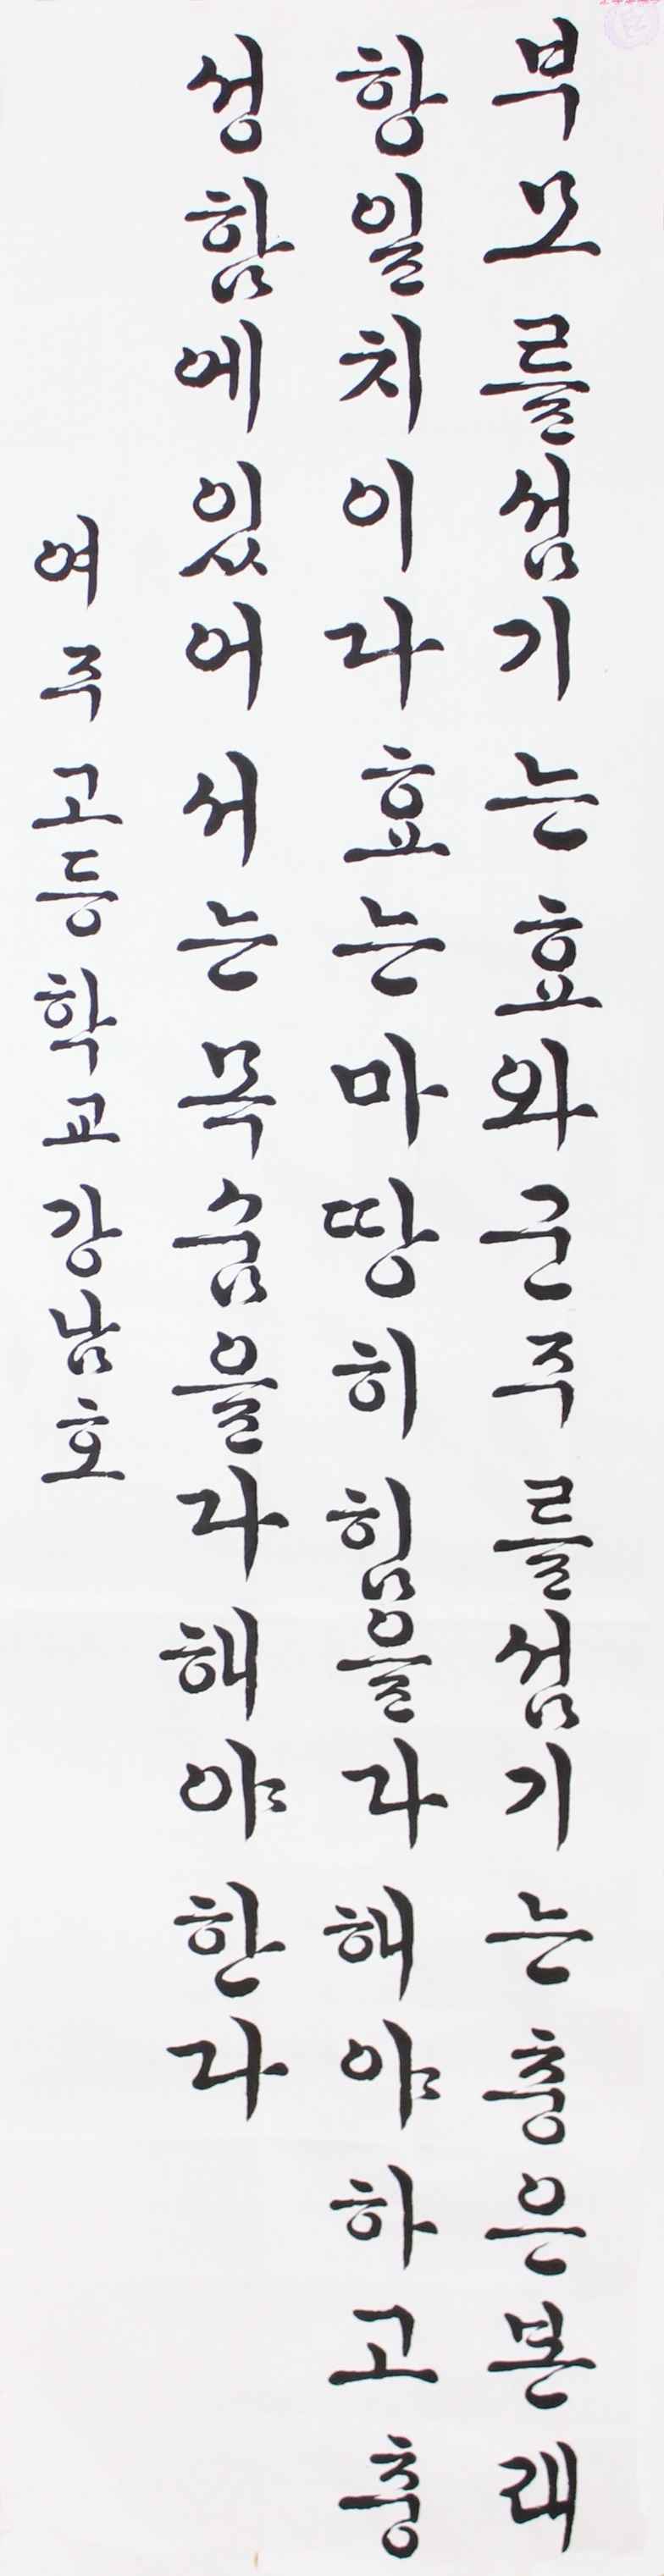 부모를섬기는효와군주를섬기는충은본래
항일치이다효는마땅히힘을다해야하고충
성함에있어서는목숨을다해야한다
여주고등학교강남호